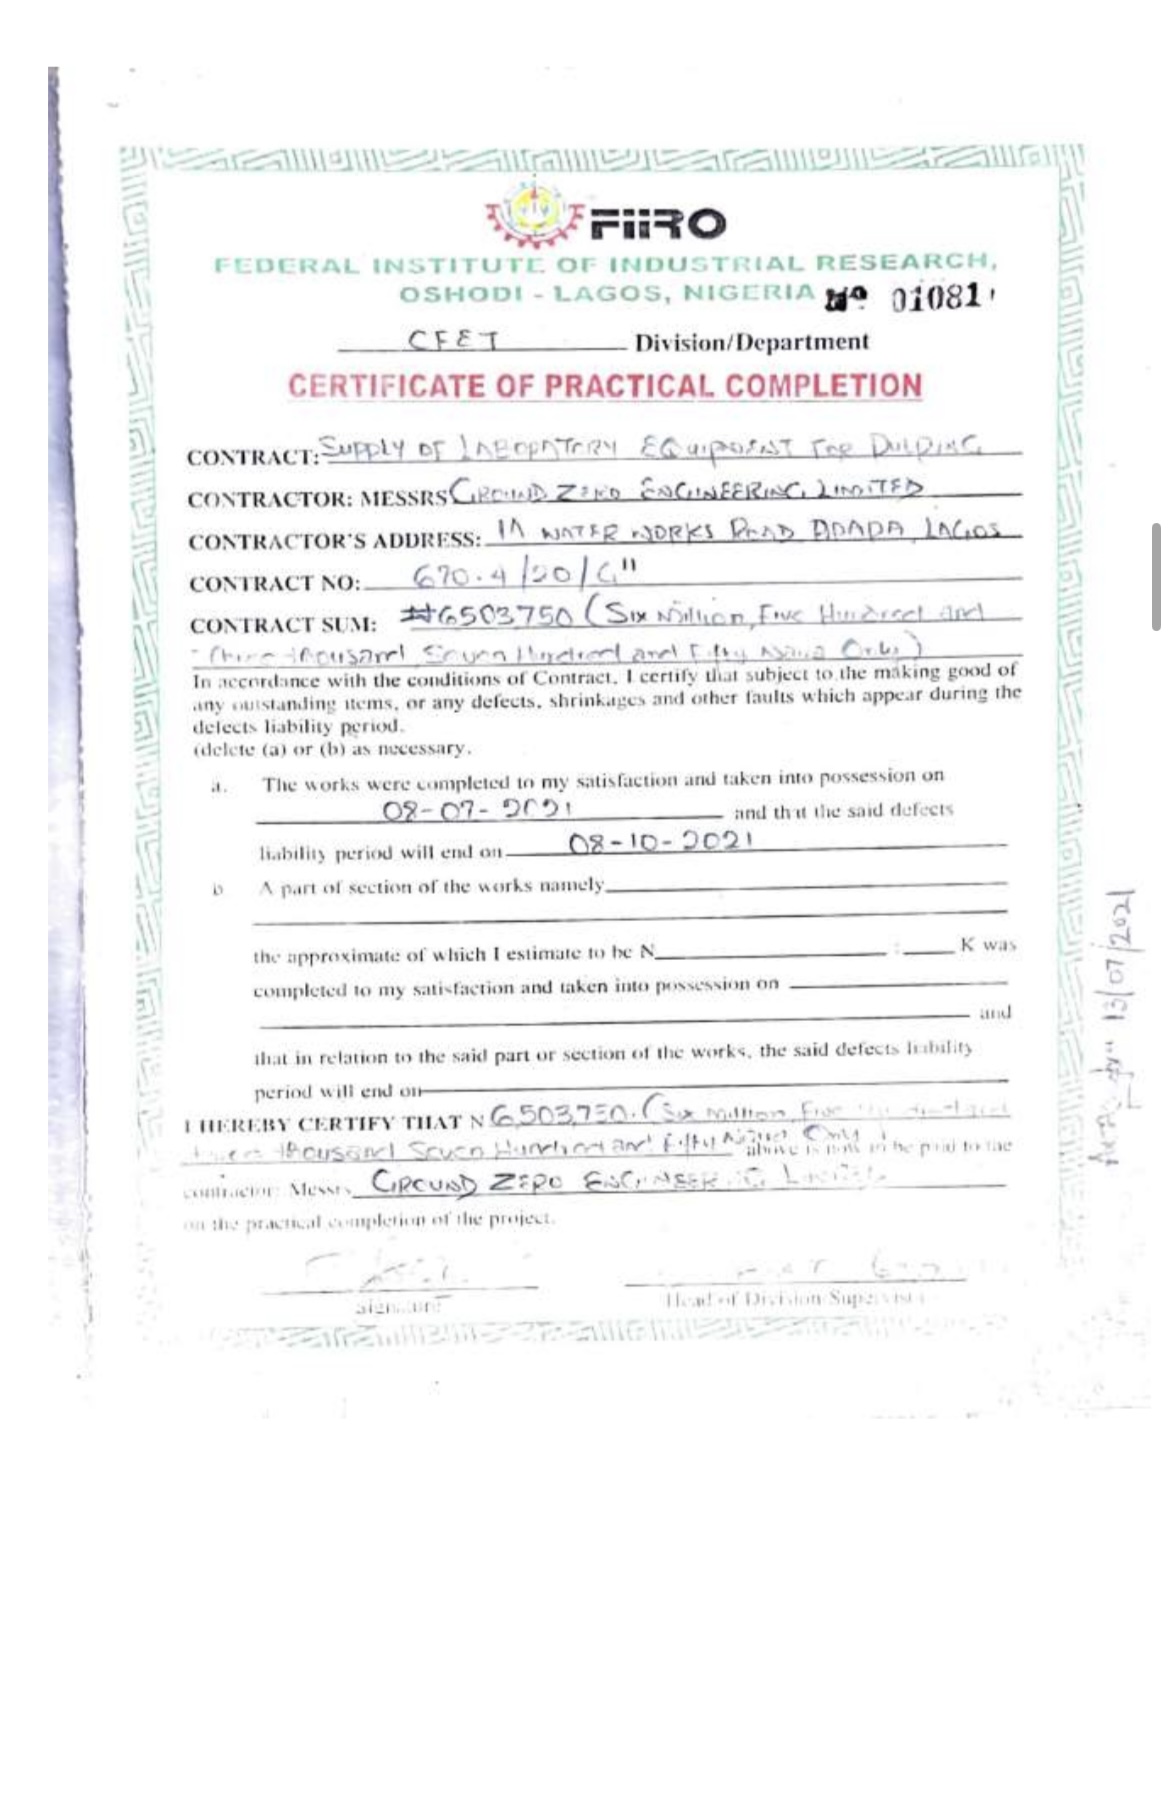 FiiRO
FEDERAL INSTITUTE OF INDUSTRIAL RESEARCH,
OSHODI - LAGOS, NIGERIA No 01081
CFET Division/Department
CERTIFICATE OF PRACTICAL COMPLETION
CONTRACT: Supply OF LABORATORY EQUIPMENT FOR PULPING
CONTRACTOR: MESSRS GROUND ZERO ENGINEERING LIMITED
CONTRACTOR'S ADDRESS: 1A WATER WORKS ROAD LAGOS
CONTRACT NO: 670.4/20/
CONTRACT SUM: #6503750 (Six Million, Five Hundred and
three thousand Seven Hundred and Fifty Naira Only)
In accordance with the conditions of Contract, I certify that subject to the making good of
any outstanding items, or any defects, shrinkages and other faults which appear during the
defects liability period.
(delete (a) or (b) as necessary.
a. The works were completed to my satisfaction and taken into possession on
08-07-2021 and that the said defects
liability period will end on 08-10-2021
b A part of section of the works namely
the approximate of which I estimate to be N : K was
completed to my satisfaction and taken into possession on
and
that in relation to the said part or section of the works, the said defects liability
period will end on
I HEREBY CERTIFY THAT N 6,503,750. (Six Million, Five Hundred and
three thousand Seven Hundred and Fifty Naira Only) above is now to be paid to the
contractor: Messrs GROUND ZERO ENGINEERING Limited
on the practical completion of the project.
Signature Head of Division/Supervisor
13/07/2021